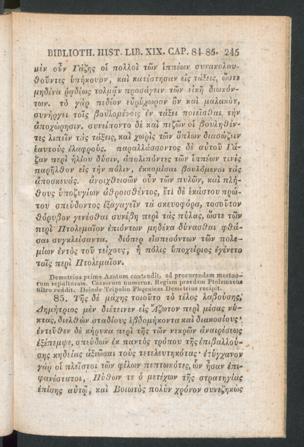 BIBLIOTH. HIST. LIB. XIX. CAP. 84-85. 245
μὲν οὖν Γάζης οἱ πολλοὶ τῶν ἱππέων συνακολου-
θοῦντες ὑπήκουον, καὶ κατέστησαν εἰς τάξεις, ὥστε
μηδένα ῥᾳδίως τολμᾷν προσάγειν τῶν εἰκῆ διωκόν-
των. τὸ γὰρ πεδίον εὐρύχωρον ὂν καὶ μαλακὸν,
συνήργει τοῖς βουλομένοις ἐν τάξει ποιεῖσθαι τὴν
ἀποχώρησιν. συνείποντο δὲ καὶ πεζῶν οἱ βουληθέν-
τες λιπεῖν τὰς τάξεις, καὶ χωρὶς τῶν ὅπλων διασώζειν
ἑαυτοὺς ἐλαφρούς. παραλλάσσοντος δὲ αὐτοῦ Γά-
ζαν περὶ ἡλίου δύσιν, ἀπολιπόντες τῶν ἱππέων τινὲς
παρῆλθον εἰς τὴν πόλιν, ἐκκομίσαι βουλόμενοι τὰς
ἀποσκευάς. ἀνοιχθεισῶν οὖν τῶν πυλῶν, καὶ πλή-
θους ὑποζυγίων ἀθροισθέντος, ἔτι δὲ ἑκάστου πρώ-
του σπεύδοντος ἐξαγαγεῖν τὰ σκευοφόρα, τοσοῦτον
θόρυβον γενέσθαι συνέβη περὶ τὰς πύλας, ὥστε τῶν
περὶ Πτολεμαῖον ἐπιόντων μηδένα δύνασθαι φθά-
σαι συγκλείσαντα. διόπερ εἰσπεσόντων τῶν πολε-
μίων ἐντὸς τοῦ τείχους, ἡ πόλις ὑποχείριος ἐγένετο
τοῖς περὶ Πτολεμαῖον.
Demetrius primo Azotum contendit, ad procurandam mortuo-
rum sepulturam. Caesorum numerus. Regiam praedam Ptolemaeus
ultro reddit. Deinde Tripolin Phoenices Demetrius recipit.
85. Τῆς δὲ μάχης τοιοῦτο τὸ τέλος λαβούσης,
Δημήτριος μὲν διέτεινεν εἰς Ἄζωτον περὶ μέσας νύ-
κτας, διελθὼν σταδίους ἑβδομήκοντα καὶ διακοσίους·
ἐντεῦθεν δὲ κήρυκα περὶ τῆς τῶν νεκρῶν ἀναιρέσεως
ἐξέπεμψε, σπεύδων ἐκ παντὸς τρόπου τῆς ἐπιβαλλού-
σης κηδείας ἀξιῶσαι τοὺς τετελευτηκότας· ἐτύγχανον
γὰρ οἱ πλεῖστοι τῶν φίλων πεπτωκότες, ὧν ἦσαν ἐπι-
φανέστατοι, Πύθων τε ὁ μετέχων τῆς στρατηγίας
ἐπίσης αὐτῷ, καὶ Βοιωτὸς πολὺν χρόνον συνεζηκὼς